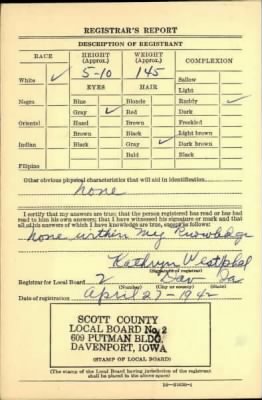 REGISTRAR'S REPORT
DESCRIPTION OF REGISTRANT
RACE HEIGHT (Approx.) WEIGHT (Approx.) COMPLEXION
White ✓ 5-10 145 Sallow
EYES HAIR Light
Negro Blue Blonde Ruddy ✓
Gray ✓ Red Dark
Oriental Hazel Brown Freckled
Brown Black Light brown
Indian Black Gray ✓ Dark brown
Bald Black
Filipino
Other obvious physical characteristics that will aid in identification
none
I certify that my answers are true; that the person registered has read or has had
read to him his own answers; that I have witnessed his signature or mark and that
all of his answers of which I have knowledge are true, except as follows:
none within my knowledge
Kathryn Westphal
(Signature of registrar)
Registrar for Local Board 2 Dav Ia
(Number) (City or county) (State)
Date of registration April 27-1942
SCOTT COUNTY
LOCAL BOARD No. 2
609 PUTMAN BLDG.
DAVENPORT, IOWA
(STAMP OF LOCAL BOARD)
(The stamp of the Local Board having jurisdiction of the registrant
shall be placed in the above space)